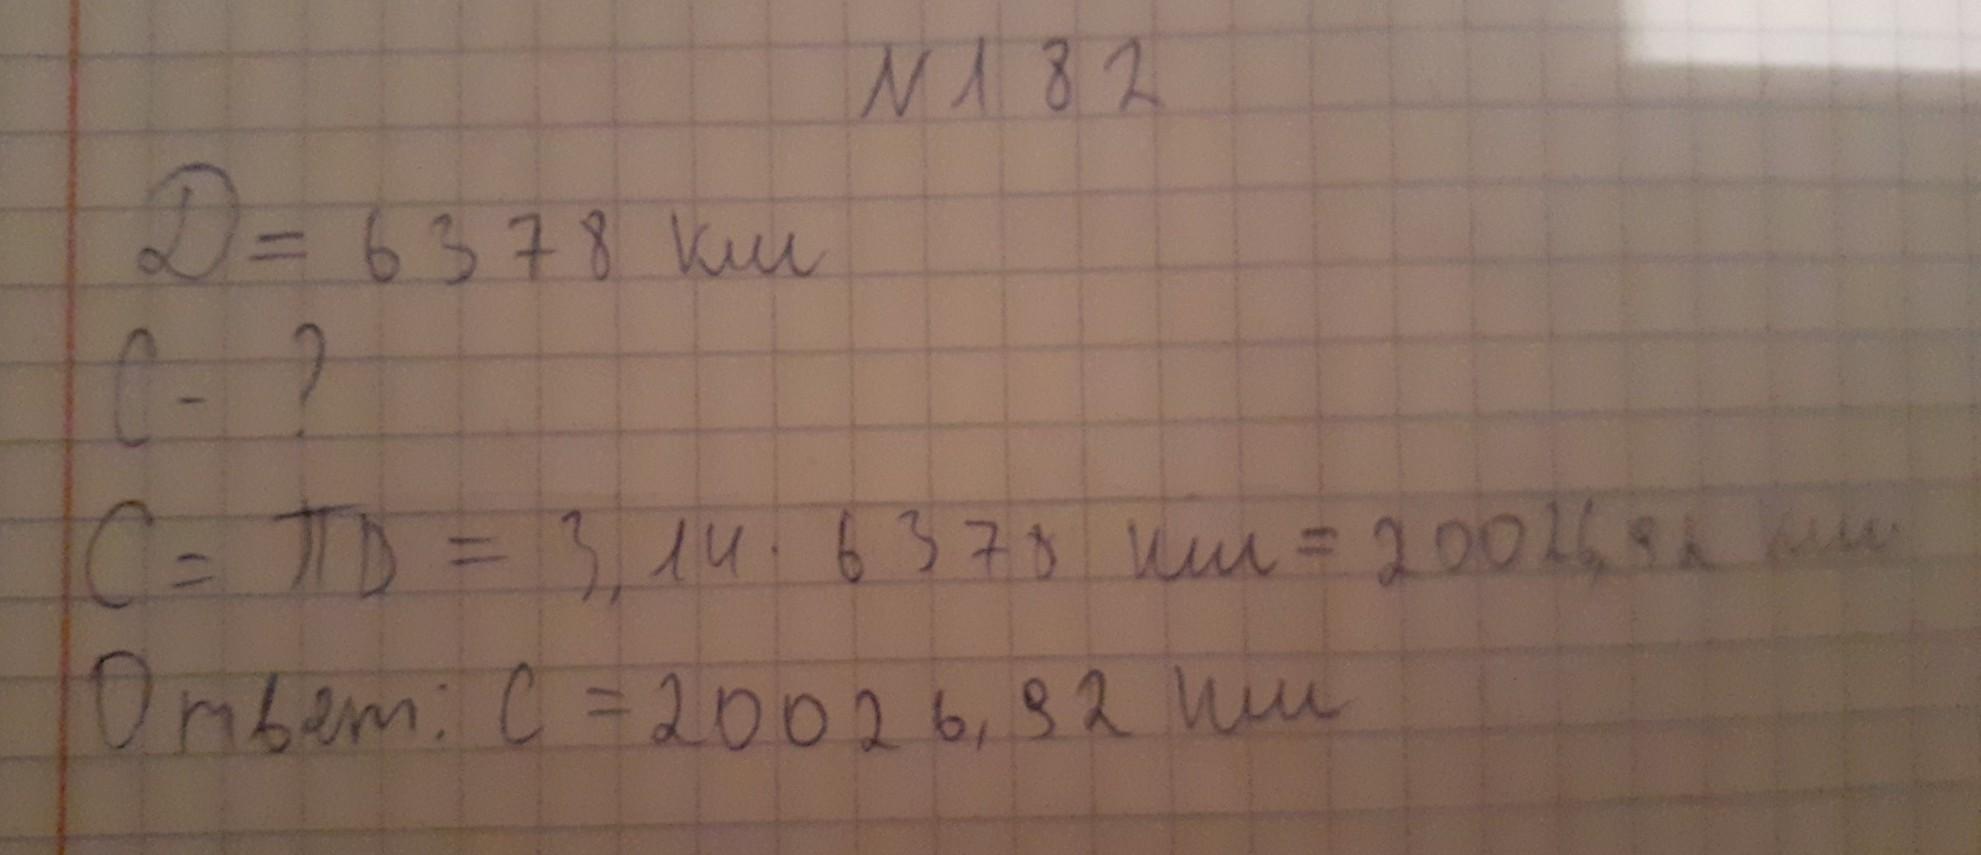 N 182
D = 6378 км
C - ?
C = πD = 3,14 · 6378 км = 20026,92 км
Ответ: C = 20026,92 км